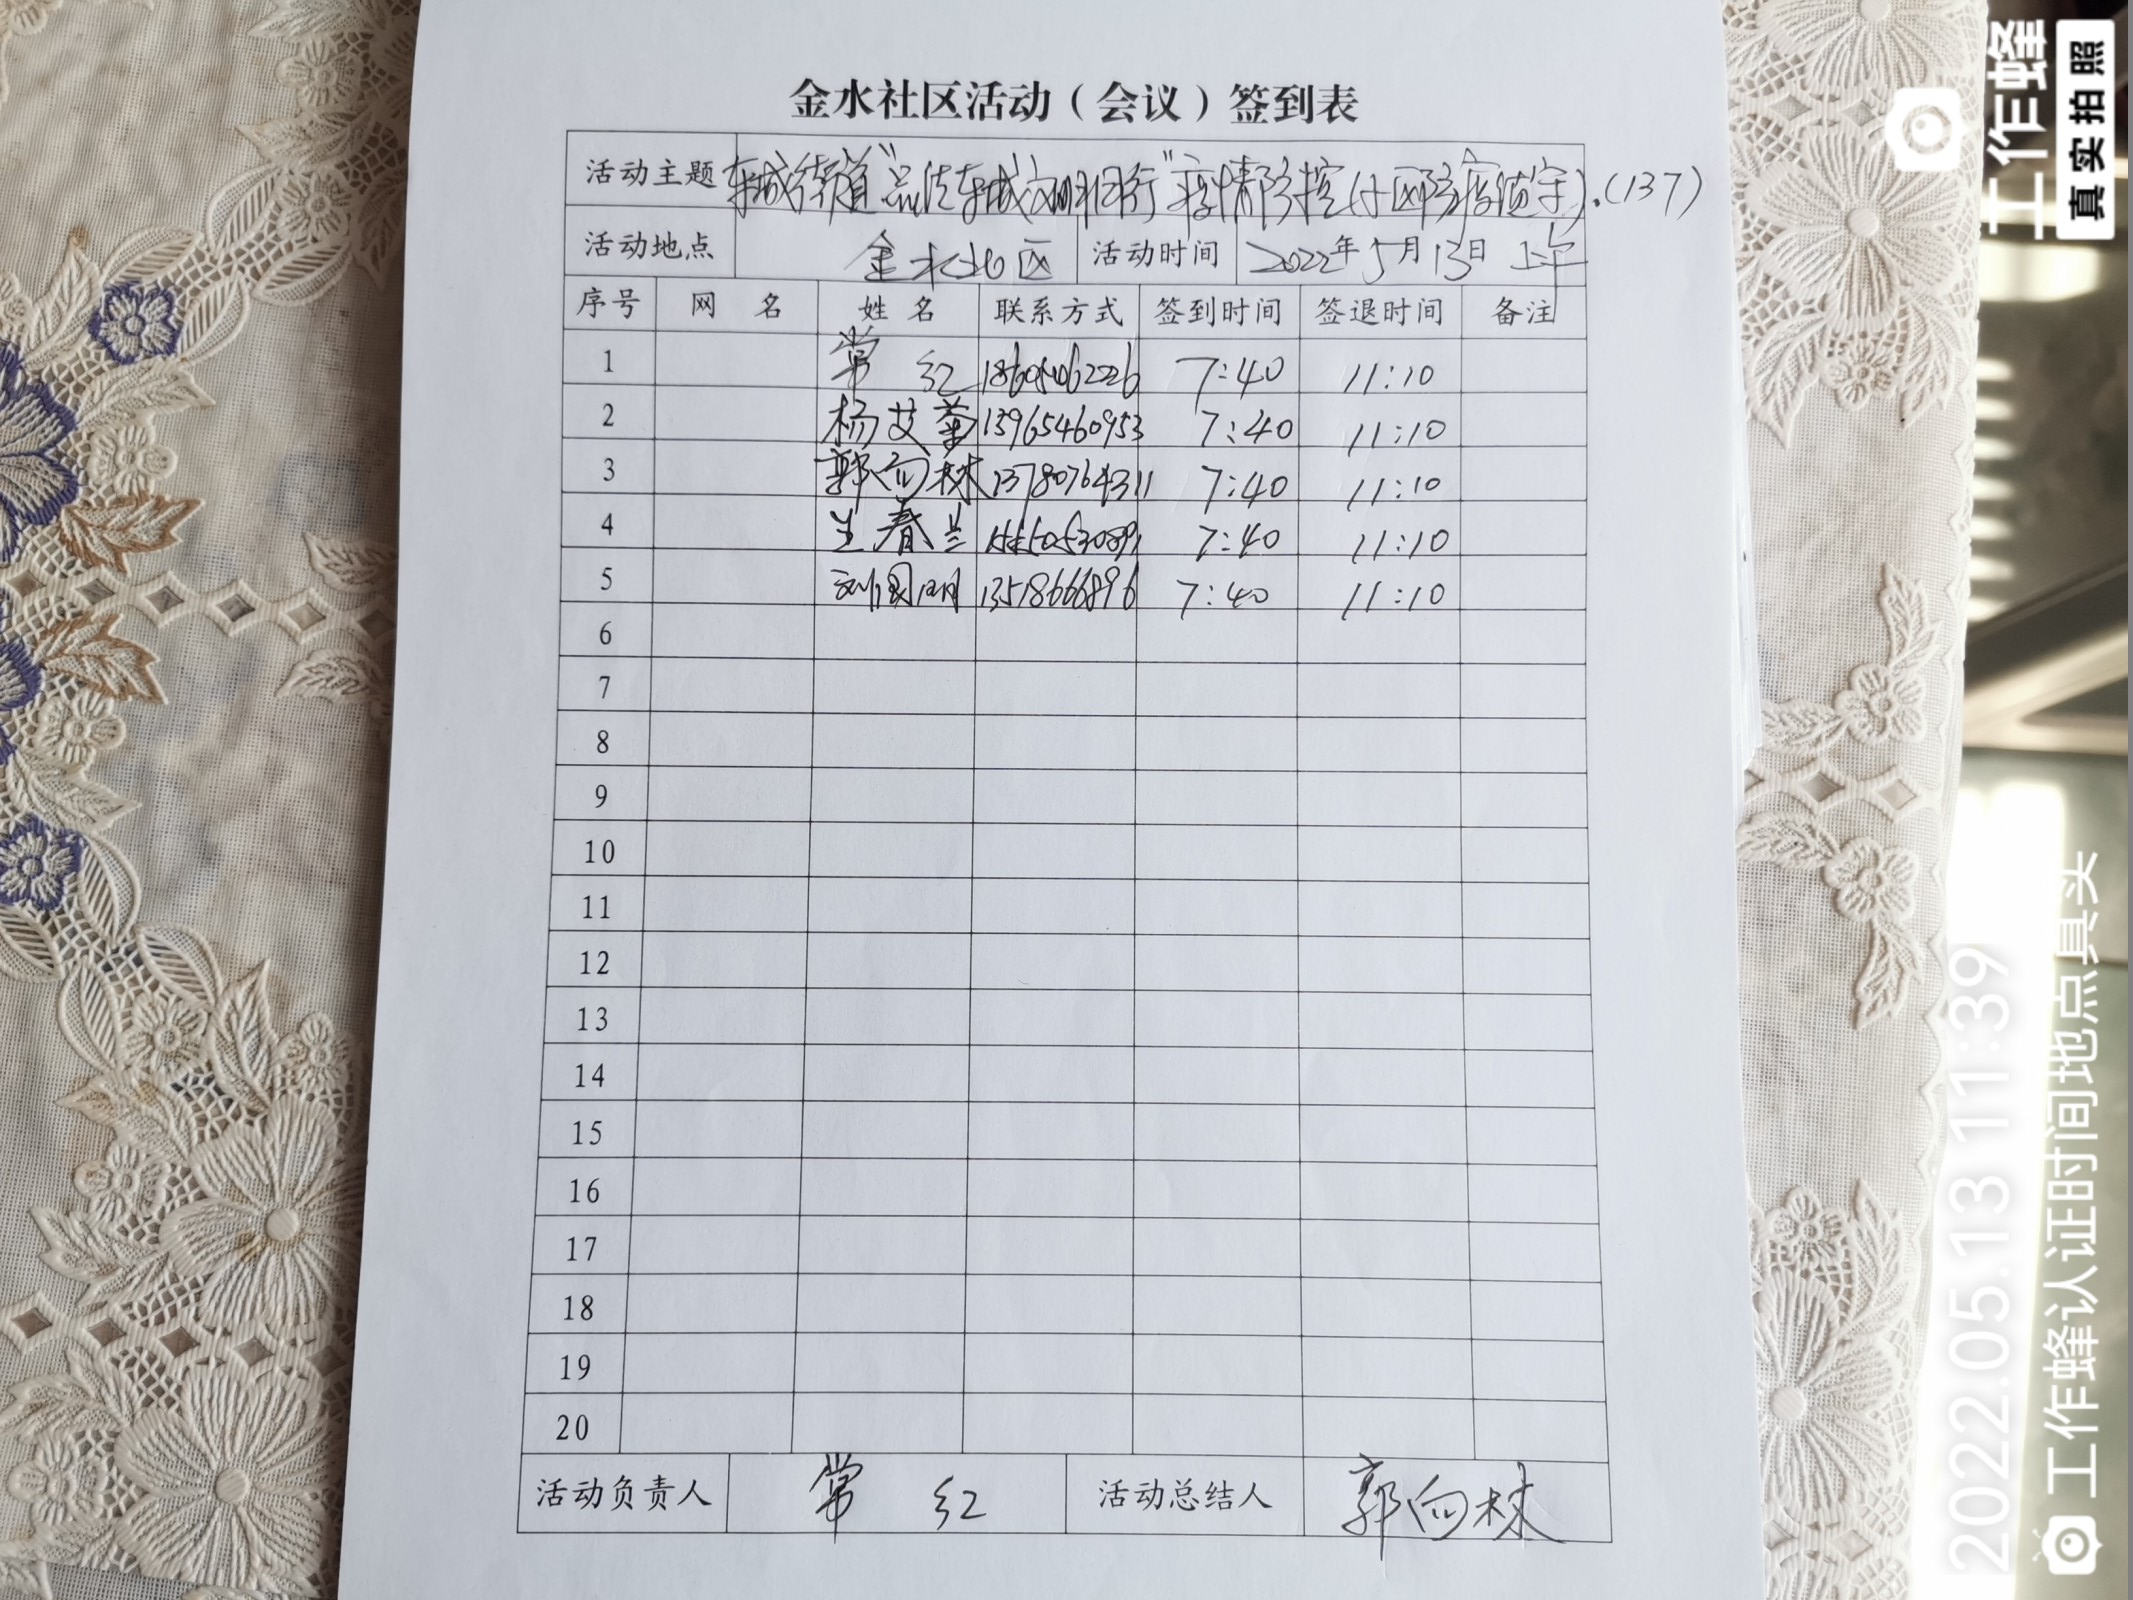 金水社区活动（会议）签到表
活动主题 东城街道"品法东城文明同行"疫情防控(小区防疫值守).(137)
活动地点 金水北区 活动时间 2022年5月13日 上午
序号 网 名 姓 名 联系方式 签到时间 签退时间 备注
1 常 红 7:40 11:10
2 杨艾华 13965460953 7:40 11:10
3 郭向林 13780764311 7:40 11:10
4 王春兰 7:40 11:10
5 刘国明 13518666896 7:40 11:10
6
7
8
9
10
11
12
13
14
15
16
17
18
19
20
活动负责人 常 红 活动总结人 郭向林
工作蜂
真实拍照
2022.05.13 11:39
工作蜂认证时间地点真实